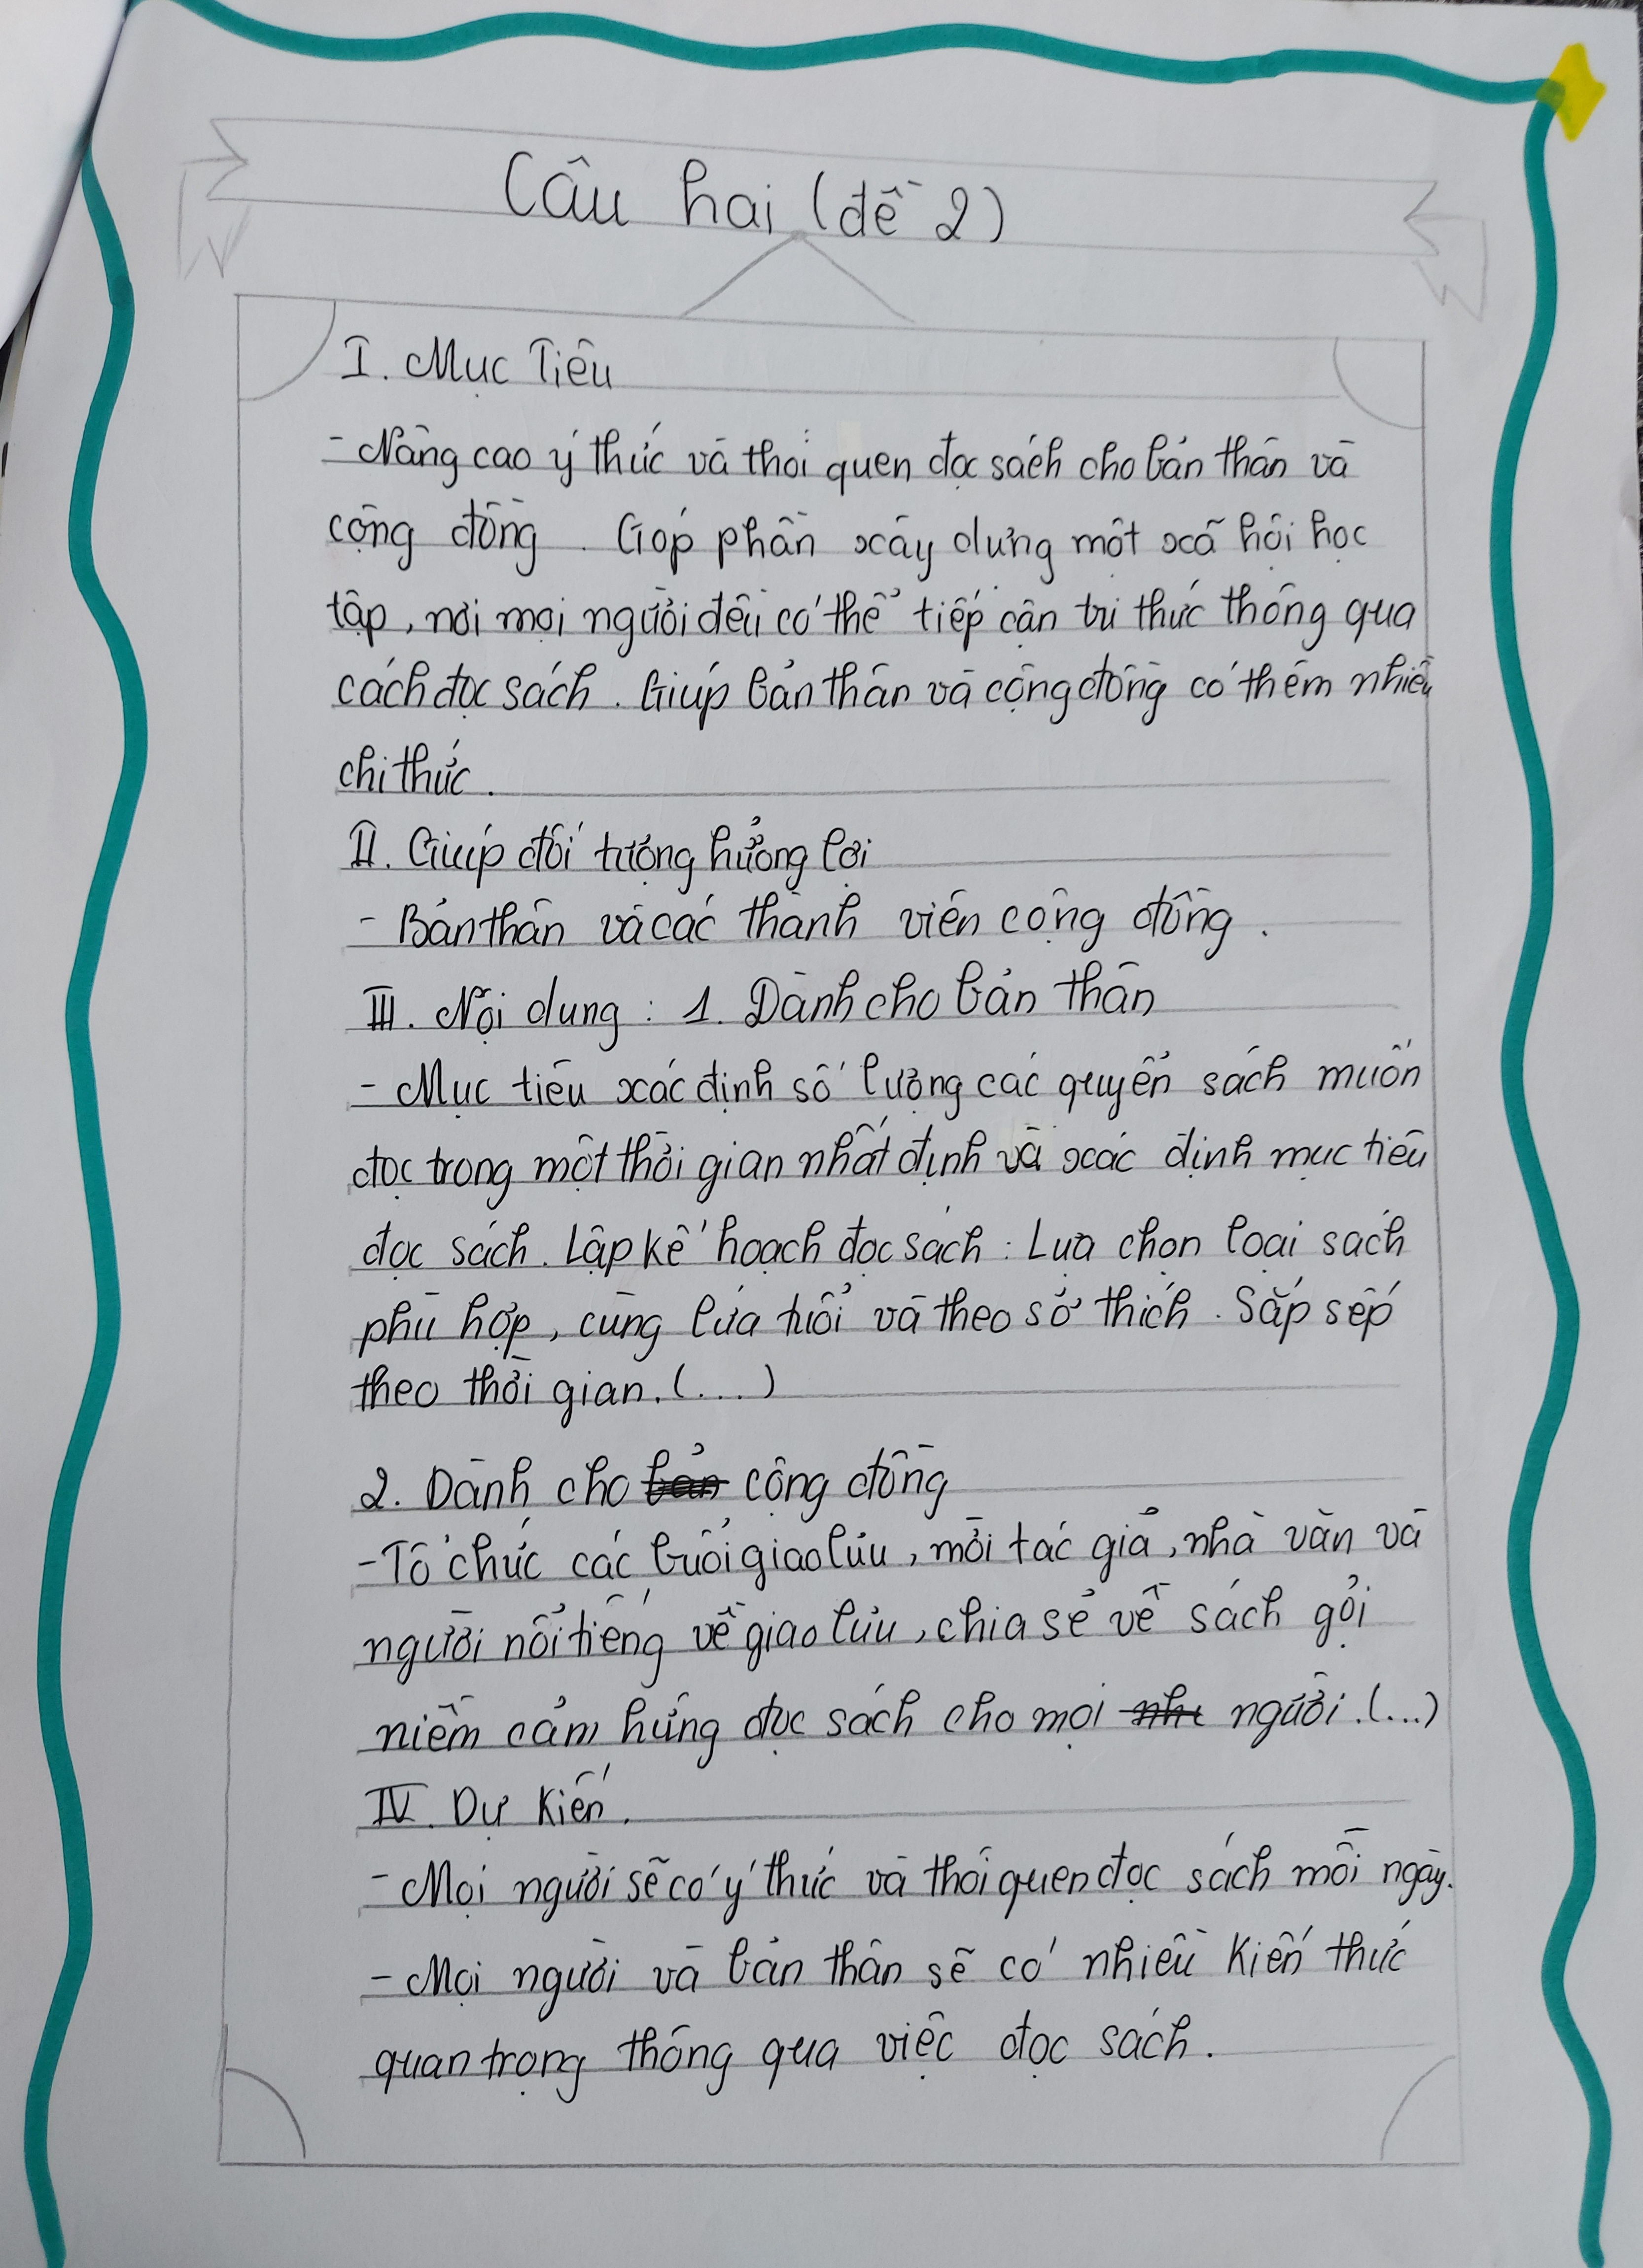 Câu hai (đề 2)
I. Mục Tiêu
- Nâng cao ý thức và thói quen đọc sách cho bản thân và
cộng đồng. Góp phần xây dựng một xã hội học
tập, nơi mọi người đều có thể tiếp cận tri thức thông qua
cách đọc sách. Giúp bản thân và cộng đồng có thêm nhiều
chi thức.
II. Giúp đối tượng hưởng lợi
- Bản thân và các thành viên cộng đồng.
III. Nội dung : 1. Dành cho bản thân
- Mục tiêu xác định số lượng các quyển sách muốn
đọc trong một thời gian nhất định và xác định mục tiêu
đọc sách. Lập kế hoạch đọc sách : Lựa chọn loại sách
phù hợp, cùng lứa tuổi và theo sở thích. Sắp sếp
theo thời gian. (....)
2. Dành cho bản cộng đồng
- Tổ chức các buổi giao lưu, mời tác giả, nhà văn và
người nổi tiếng về giao lưu, chia sẻ về sách gợi
niềm cảm hứng đọc sách cho mọi nhi người. (...)
IV. Dự Kiến.
- Mọi người sẽ có ý thức và thói quen đọc sách mỗi ngày.
- Mọi người và bản thân sẽ có nhiều kiến thức
quan trọng thông qua việc đọc sách.